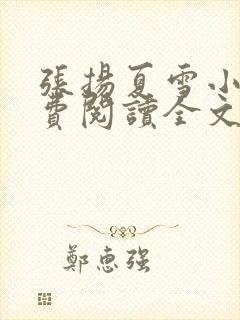 張揚夏雪小
費閱讀全文
鄭惠強